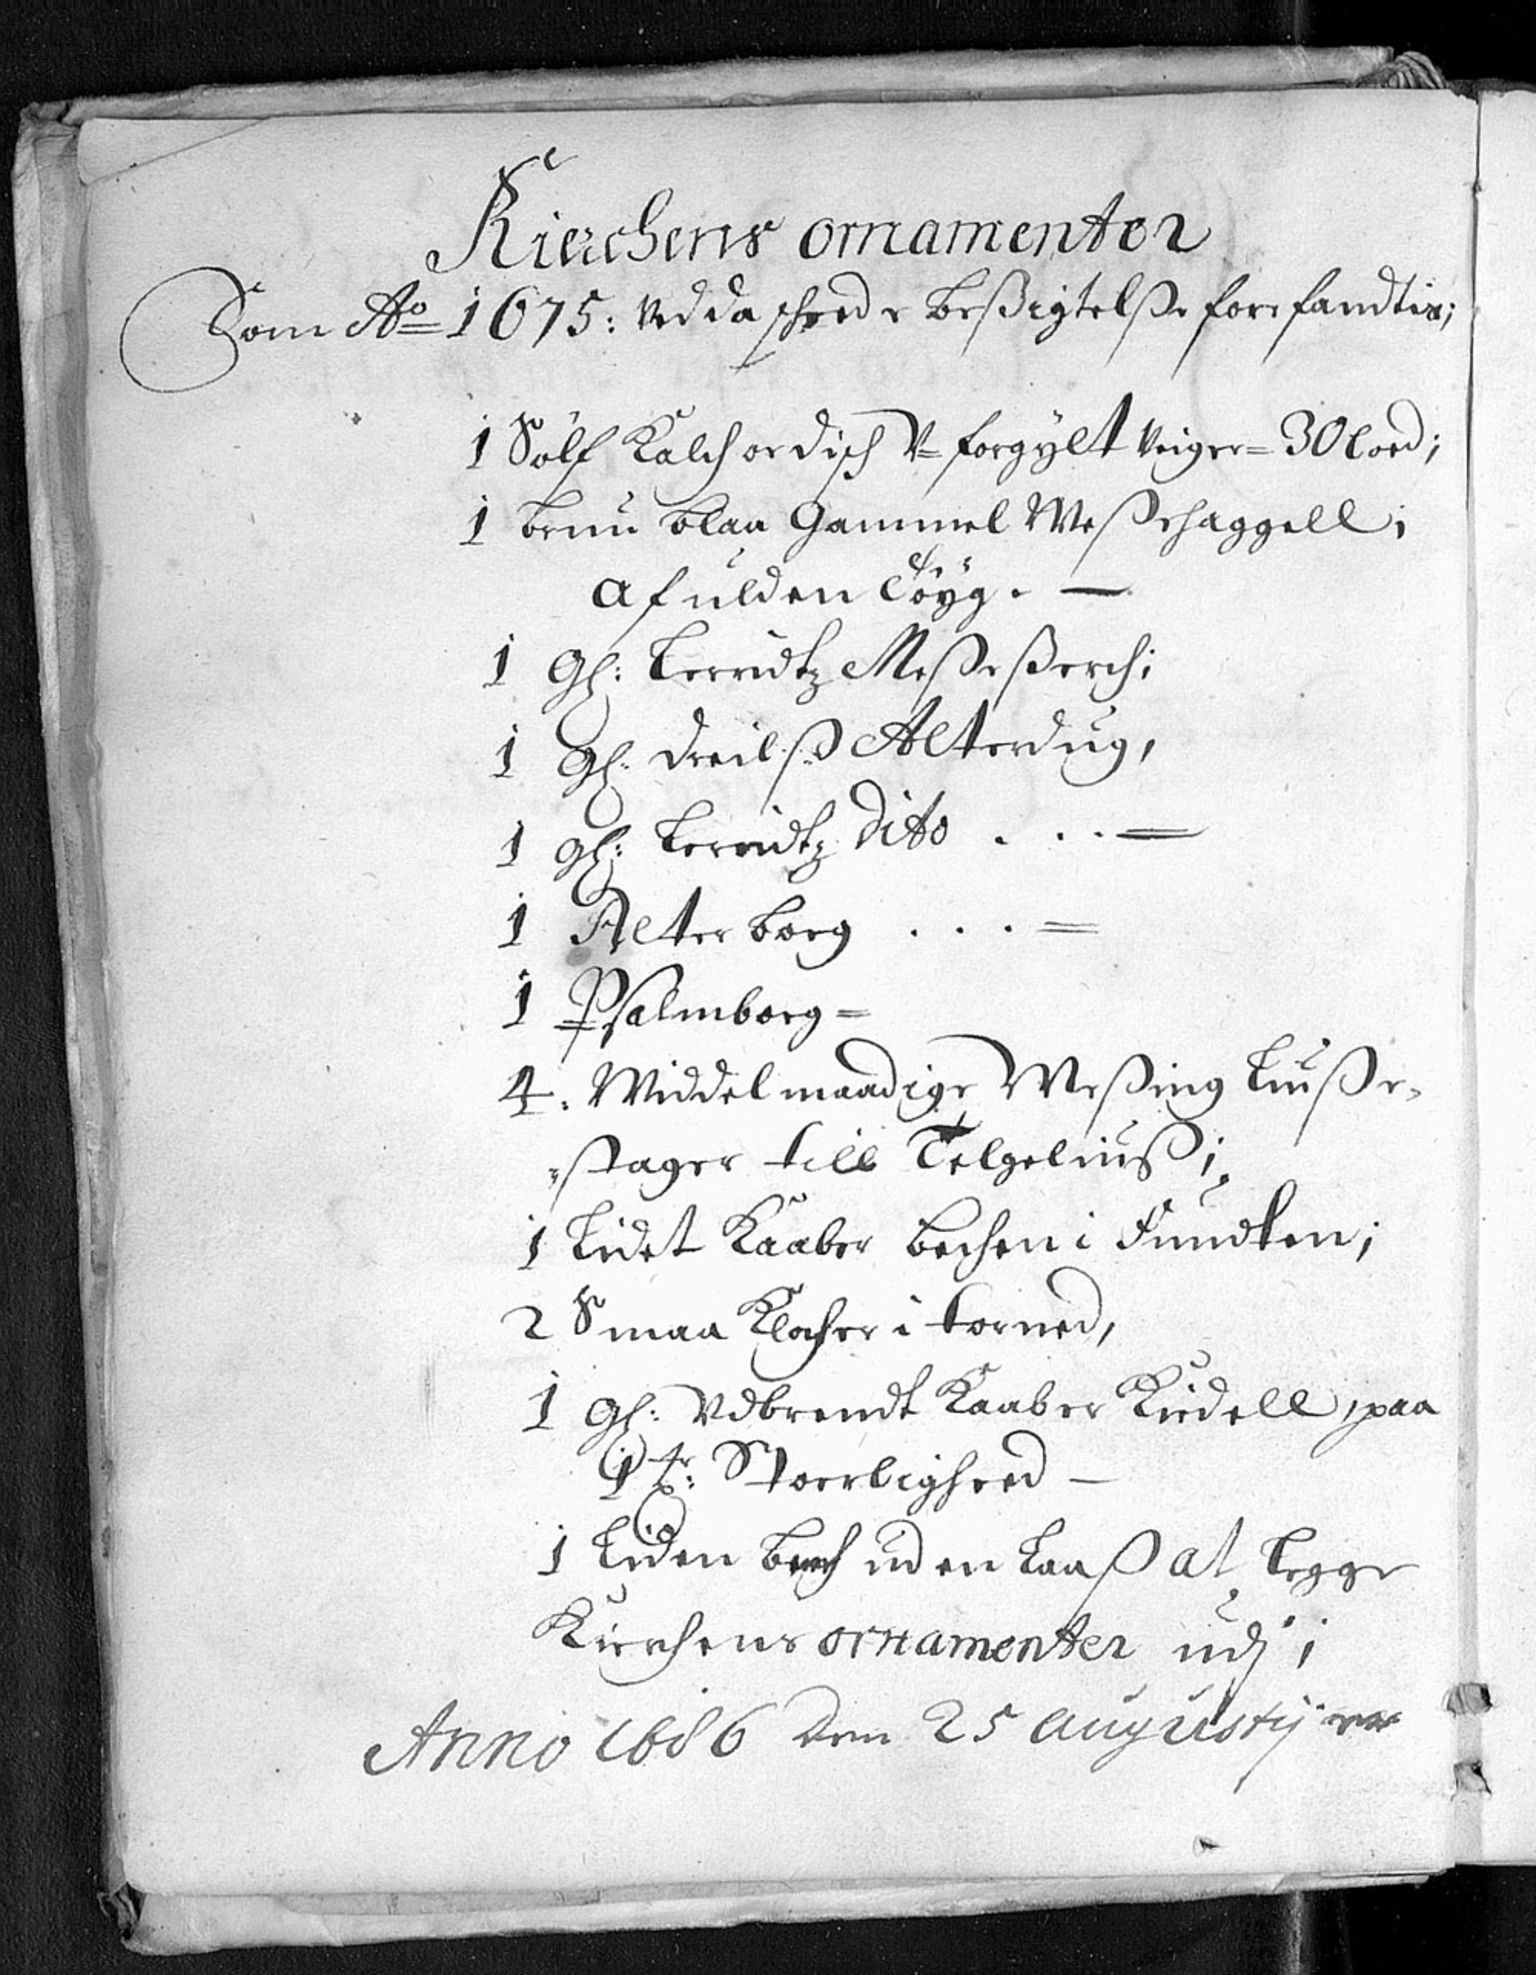 Kierchens ornamenter
Som Ao 1675: ved da scheede beßigtelße forefandtis;
1 Sölf Kalch oc disch V= forgÿlt veiger= 30 Loed;
1 brun blaa Gammel Meßehaggell;
af ulden töÿg. —
1 gl: Lerridtz Meßeßerch;
1 gl: dreilß Alterdug,
1 gl: Lerridtz dito . . . =
1 Alterboeg . . . =
1 Psalmboeg=
4. Middelmaadige Meßing Liuße-
=stager till Telgeliuß;
1 Lidet Kaaber bechen i Fundten;
2 Smaa Klocher i torned,
1 gl: Vdbrendt Kaaber Kiedell, paa
1 tr: Stoerligheed —
1 Liden bench uden Laaß at legge
Kierchens ornamenter udj;
Anno 1686 den 25 augustij